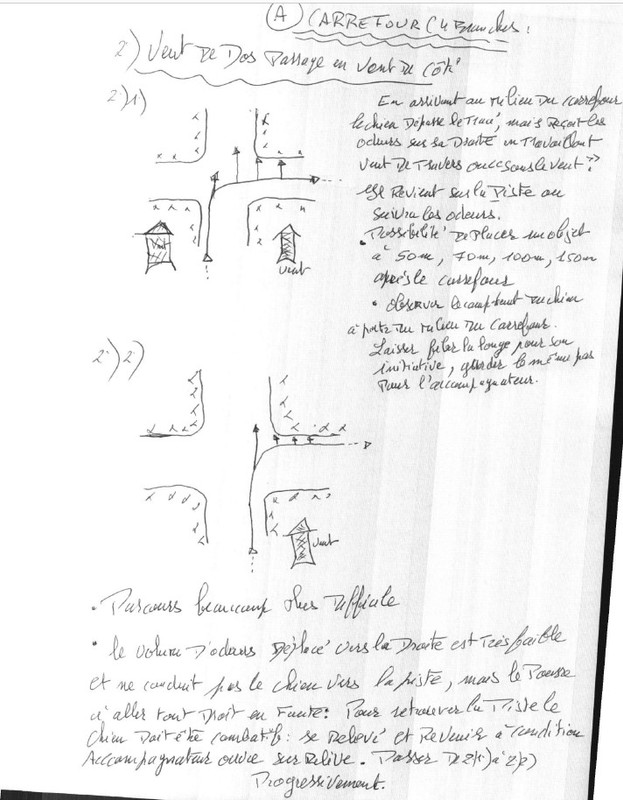 A) CARREFOUR (4 Branches:
2) Vent De Dos Passage en Vent De Côté
2)1)
En arrivant au milieu Du carrefour
le chien Dépasse le Trait, mais Reçoit les
odeurs sur sa Droite en Travaillant
vent De Travers ou sous le vent"
Il Revient sur la Piste ou
suivra les odeurs.
• Possibilité De placer un objet
à 50m, 70m, 100m, 150m
après le carrefour
• observer le compt Du chien
à partir Du milieu Du Carrefour.
Laisser filer la longe pour son
initiative, garder le même pas
Pour l'accompagnateur.
vent
2)2)
vent
• Parcours beaucoup plus Difficile
• le volume D'odeurs Déplacé vers la Droite est Très faible
et ne conduit pas le chien vers la piste, mais le Pousse
à aller tout Droit en Faute: Pour retrouver la Piste le
chien Doit être combatif: se Relever et Revenir à condition
Accompagnateur ouvre sur Relève. Passer De 2)1) à 2)2)
Progressivement.